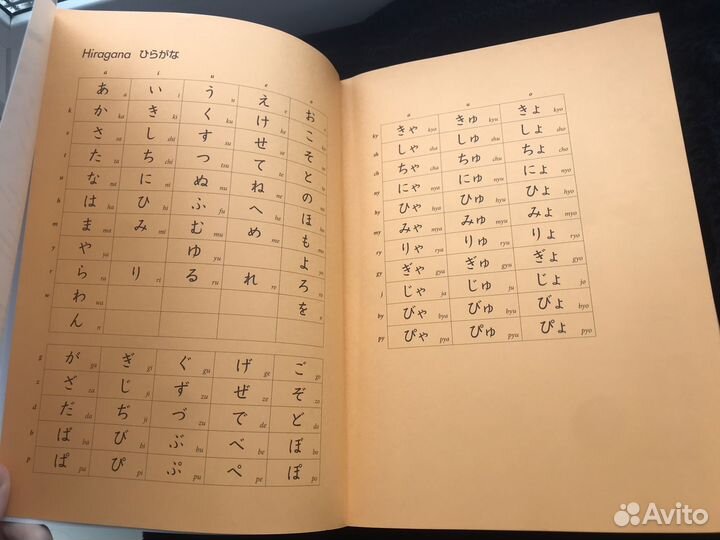 Hiragana ひらがな
a i u e o
あ a い i う u え e お o
k か ka き ki く ku け ke こ ko
s さ sa し shi す su せ se そ so
t た ta ち chi つ tsu て te と to
n な na に ni ぬ nu ね ne の no
h は ha ひ hi ふ fu へ he ほ ho
m ま ma み mi む mu め me も mo
y や ya ゆ yu よ yo
r ら ra り ri る ru れ re ろ ro
w わ wa を o
ん n
g が ga ぎ gi ぐ gu げ ge ご go
z ざ za じ ji ず zu ぜ ze ぞ zo
d だ da ぢ ji づ zu で de ど do
b ば ba び bi ぶ bu べ be ぼ bo
p ぱ pa ぴ pi ぷ pu ぺ pe ぽ po
a u o
ky きゃ kya きゅ kyu きょ kyo
sh しゃ sha しゅ shu しょ sho
ch ちゃ cha ちゅ chu ちょ cho
ny にゃ nya にゅ nyu にょ nyo
hy ひゃ hya ひゅ hyu ひょ hyo
my みゃ mya みゅ myu みょ myo
ry りゃ rya りゅ ryu りょ ryo
gy ぎゃ gya ぎゅ gyu ぎょ gyo
j じゃ ja じゅ ju じょ jo
by びゃ bya びゅ byu びょ byo
py ぴゃ pya ぴゅ pyu ぴょ pyo
Avito